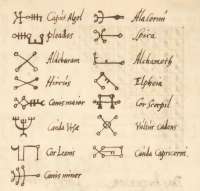 Caput Algol
Pleiades
Aldebaran
Hircus
Canis maior
Cauda Vrsæ
Cor Leonis
Canis minor
Ala Corvi
Spica
Alchameth
Elpheia
Cor Scorpii
Vultur cadens
Cauda Capricorni